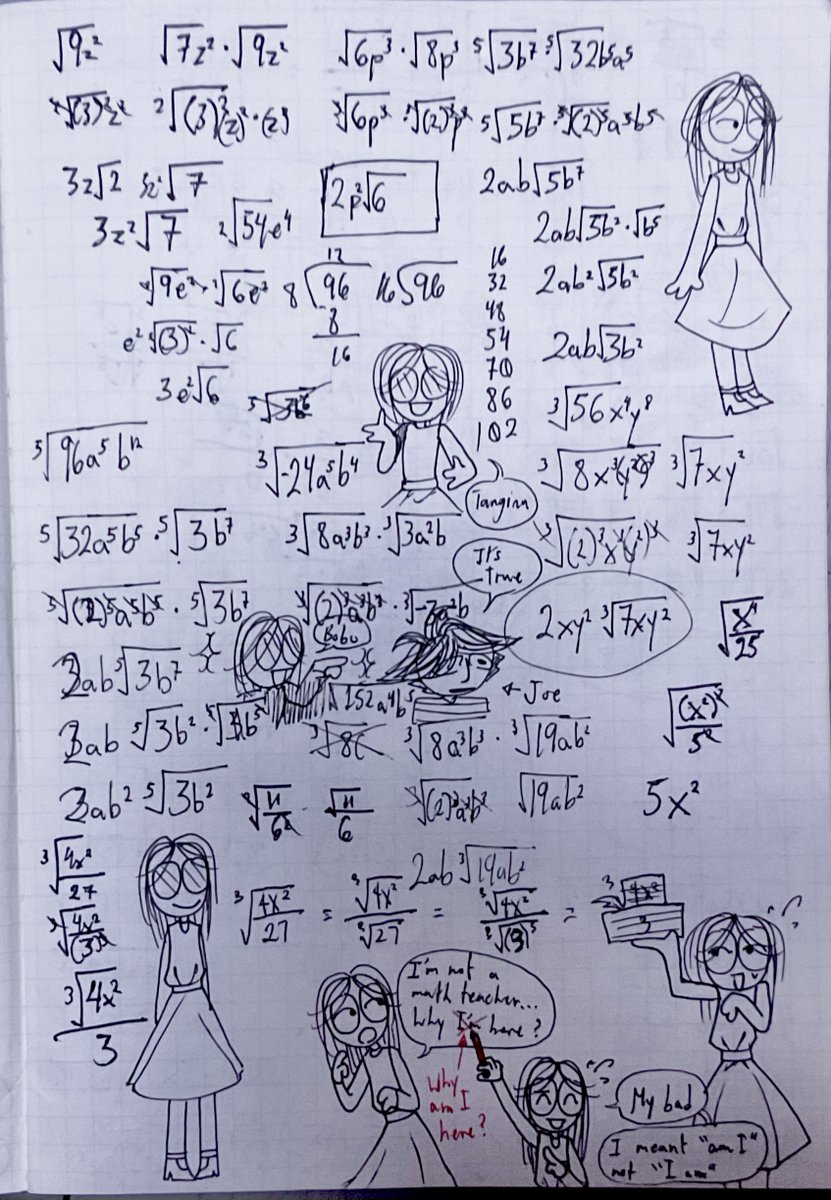 √9z² √7z² · √9z² √6p³ · √8p³ ⁵√3b⁷ ⁵√32b⁵a⁵
²√(3)²z² ²√(3)²(z)²·(z) ²√6p³ ²√(2)³p³ ⁵√5b⁷ · ⁵√(2)⁵a⁵b⁵
3z√2 3z²√7 2p²√6 2ab√5b⁷
3z²√7 ²√54e⁴ 2ab√3b² · √b⁵
²√9e² · ²√6e² 8√96 16√96 2ab²√5b²
12
8
16
e²√(3)² · √6 2ab√3b²
3e²√6
16
32
48
54
70
86
102
³√56x⁴y⁸
⁵√96a⁵b¹² ³√-24a⁵b⁴ ³√8x³(y²)³ ³√7xy²
Tangina
⁵√32a⁵b⁵ · ⁵√3b⁷ ³√8a³b³ · ³√3a²b ³√(2)³x³(y²)³ ³√7xy²
It's
true
⁵√(2)⁵a⁵b⁵ · ⁵√3b⁷ ³√(2)³a³b³ · ³√-3a²b 2xy² ³√7xy² √x⁴/25
Bobu
2ab⁵√3b⁷ 152a⁴b⁵
← Joe
2ab ⁵√3b² · ⁵√b⁵ ³√8a³b³ · ³√19ab² √(x²)²/5²
2ab² ⁵√3b² √11/6² √11/6 ³√(2)³a³b³ √19ab² 5x²
2ab ³√19ab²
³√4x²/27 ³√4x²/27 = ³√4x²/³√27 = ³√4x²/³√(3)³ = ³√4x²/3
³√4x²/(3)³
³√4x²/3
I'm not a
math teacher...
Why I'm here?
Why
am I
here?
My bad
I meant "am I"
not "I am"